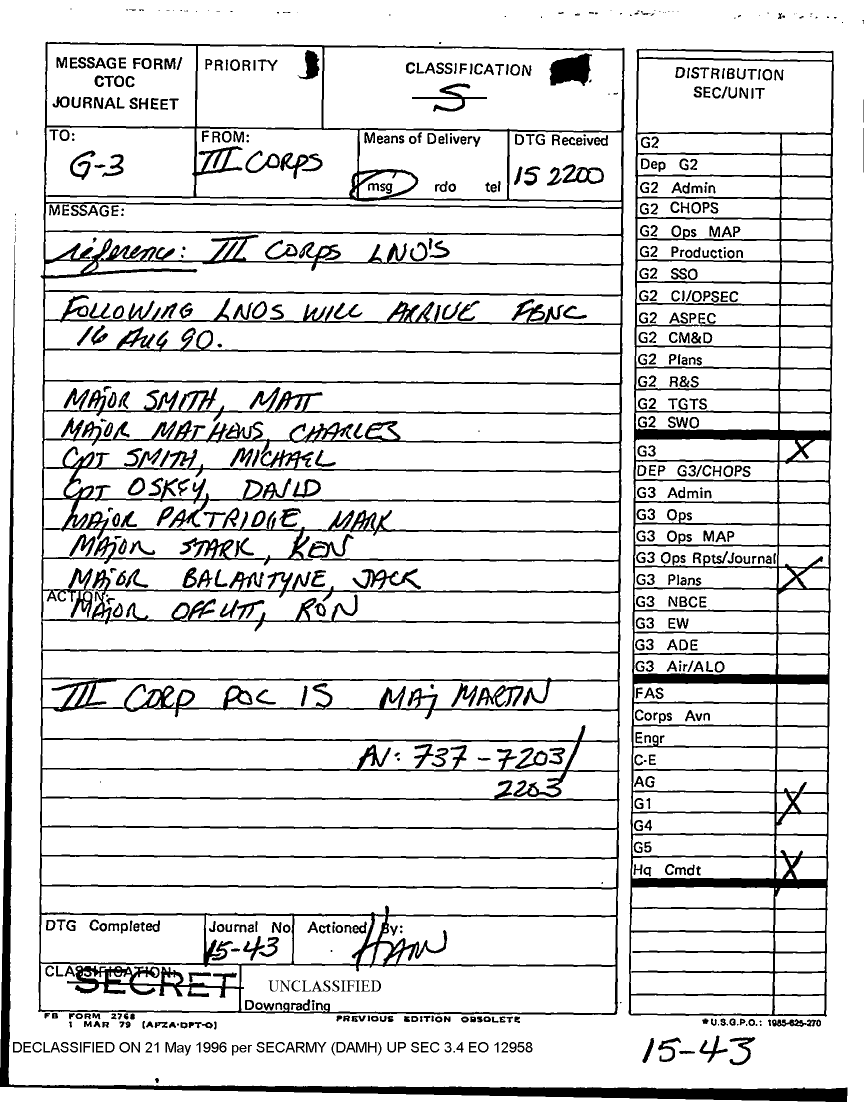 MESSAGE FORM/
CTOC
JOURNAL SHEET
PRIORITY
CLASSIFICATION
S
TO:
G-3
FROM:
III CORPS
Means of Delivery
msg rdo tel
DTG Received
15 2200
MESSAGE:
reference: III CORPS LNO'S
FOLLOWING LNOS WILL ARRIVE FBNC
16 AUG 90.
MAJOR SMITH, MATT
MAJOR MATHENS, CHARLES
CPT SMITH, MICHAEL
CPT OSKEY, DAVID
MAJOR PARTRIDGE, MARK
MAJOR STARK, KEN
MAJOR BALANTYNE, JACK
ACTION:
MAJOR OFFUTT, RON
III CORP POC IS MAJ MARTIN
AV: 737-7203/
2203
DTG Completed
Journal No
15-43
Actioned By:
HAN
CLASSIFICATION:
SECRET
UNCLASSIFIED
Downgrading
FB FORM 2768
1 MAR 79 (AFZA-DPT-O)
PREVIOUS EDITION OBSOLETE
DISTRIBUTION
SEC/UNIT
G2
Dep G2
G2 Admin
G2 CHOPS
G2 Ops MAP
G2 Production
G2 SSO
G2 CI/OPSEC
G2 ASPEC
G2 CM&D
G2 Plans
G2 R&S
G2 TGTS
G2 SWO
G3 X
DEP G3/CHOPS
G3 Admin
G3 Ops
G3 Ops MAP
G3 Ops Rpts/Journal
G3 Plans X
G3 NBCE
G3 EW
G3 ADE
G3 Air/ALO
FAS
Corps Avn
Engr
C-E
AG
G1 X
G4
G5
Hq Cmdt X
*U.S.G.P.O.: 1985-625-270
DECLASSIFIED ON 21 May 1996 per SECARMY (DAMH) UP SEC 3.4 EO 12958
15-43